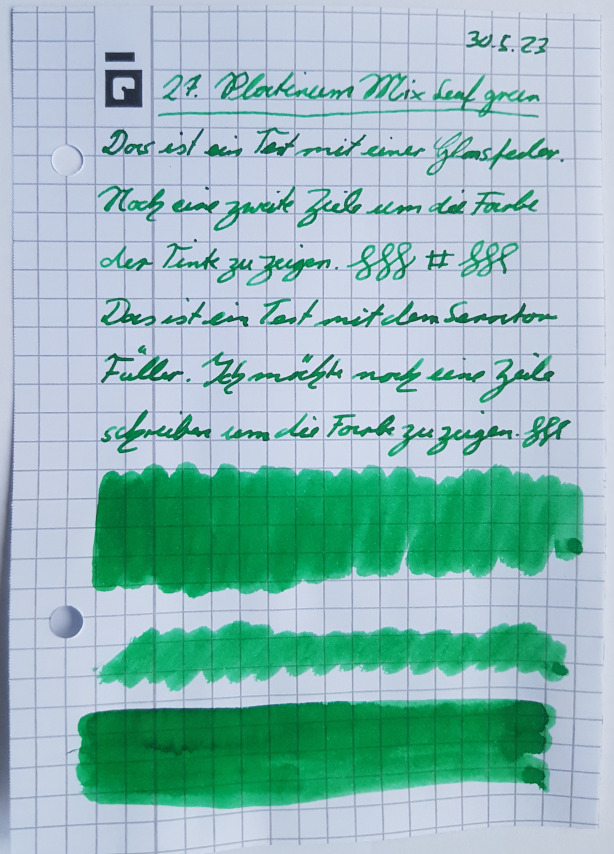 30.5.23
27. Platinum Mix Leaf green
Das ist ein Test mit einer Glasfeder.
Noch eine zweite Zeile um die Farbe
der Tinte zu zeigen. §§§ # §§§
Das ist ein Test mit dem Senator
Füller. Ich möchte noch eine Zeile
schreiben um die Farbe zu zeigen. §§§